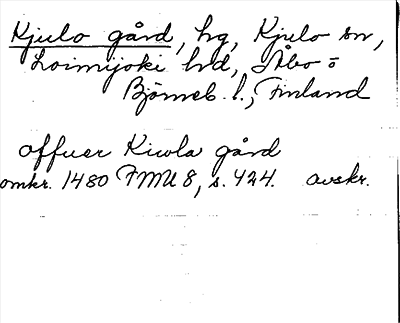 Kjulo gård, hg, Kjulo sn,
Loimijoki hd, Åbo o
Björneb. l., Finland
offuer Kiwla gård
omkr. 1480 FMU 8, s. 424. avskr.